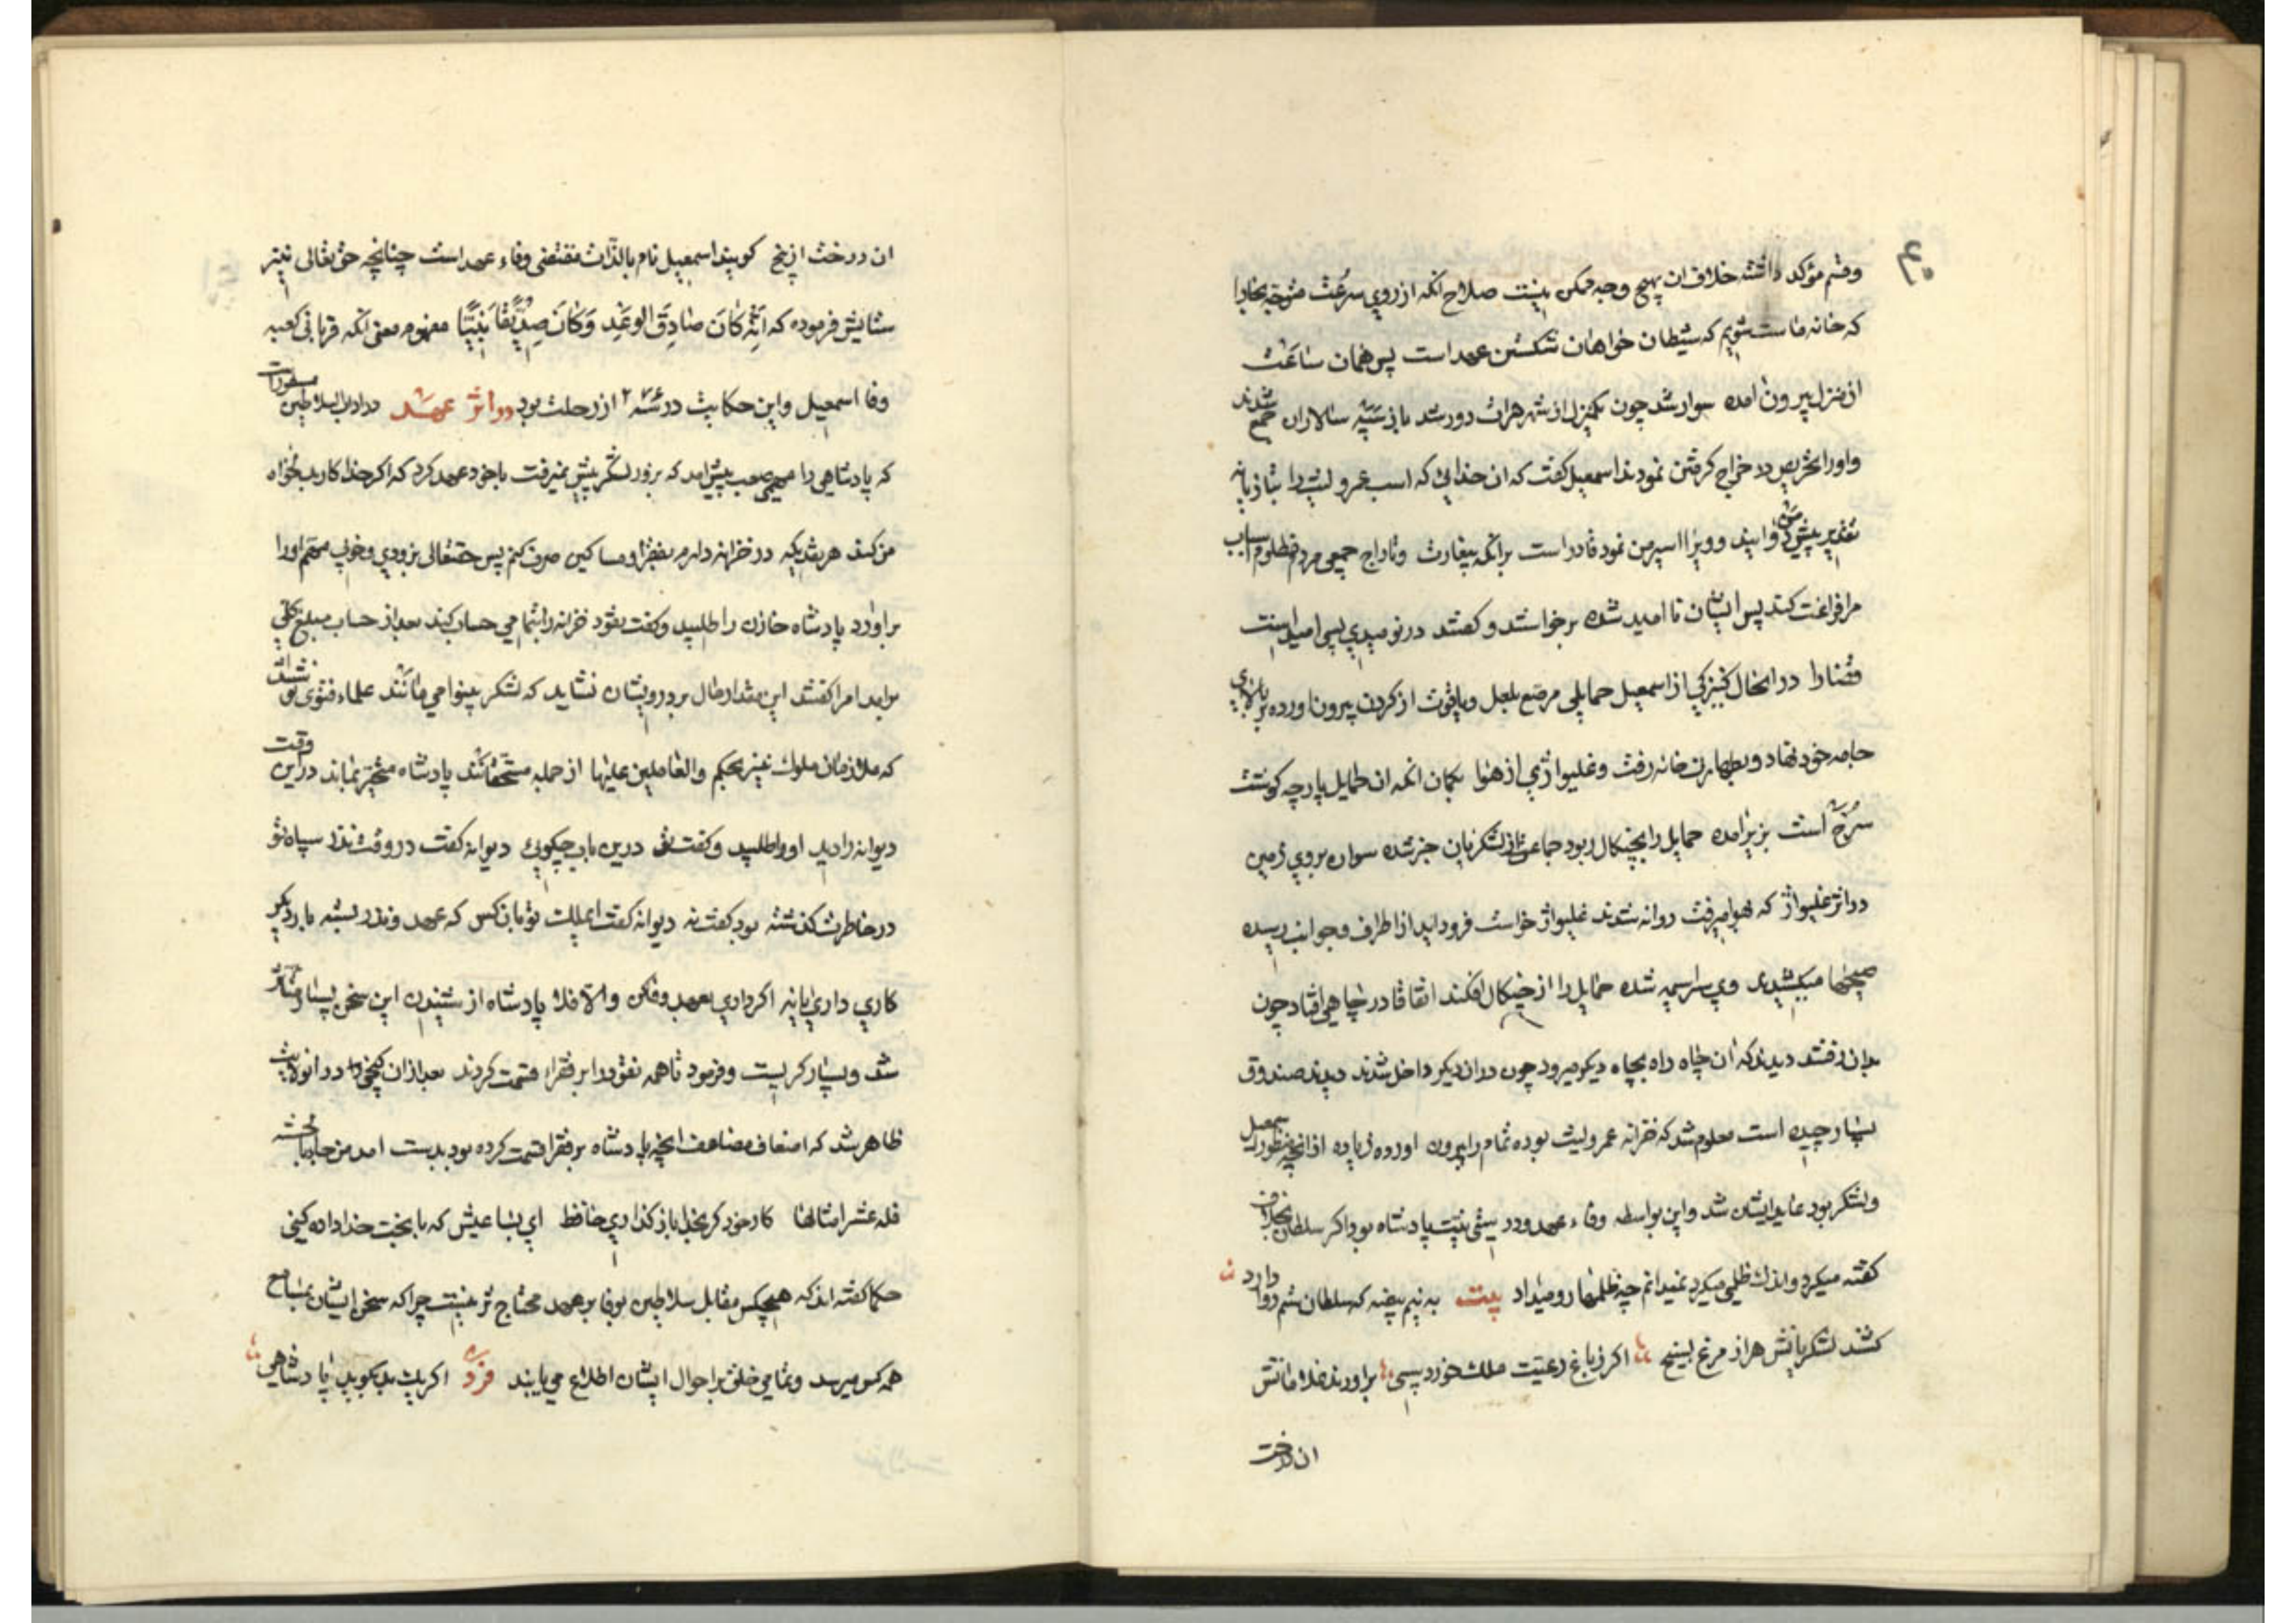 ۴۰
وقسم مؤکد داشته خلاف ان بهیچ وجه ممکن نیست صلاح انکه از روی سرعت متوجه بخارا
که خانه ماست شویم که شیطان خواهان شکستن عهد است پس همان ساعت
از منزل بیرون امده سوار شد چون یکمنزل از شهر هرات دور شد باز سپه سالاران جمع شدند
واورا تحریص در خراج کرفتن نمودند اسمعیل کفت که ان خدایی که اسب عمرو لیث را بتازیانه
تقدیر پیش من دوانید وویرا اسیر من نمود قادر است برانکه بیغارت وتاراج جمعی مردم مظلوم اسباب
مرا فراغت کند پس ایشان نا امید شده برخواستند وکفتند در نومیدی بسی امید است
قضا را در انحال کنیزکی از اسمعیل حمایلی مرصع بلعل ویاقوت از کردن بیرون اورده بر بالای
جامه خود نهاد وبطهارت خانه رفت وغلیواژی از هوا بکمان انکه ان حمایل پارچه کوشت
سرخ است بزیر امده حمایل را بچنکال ربود جماعتی از لشکریان خبر شده سواره بر روی زمین
در اثر غلیواژ که بهوا میرفت روانه شدند غلیواژ خواست فرود اید از اطراف وجوانب رسیده
صیحها میکشیدند وی سراسیمه شده حمایل را از چنکال افکند اتفاقا در چاهی افتاد چون
بدان رفتند دیدند که ان چاه راه بچاه دیکر میرود چون دران دیکر داخل شدند دیدند صندوق
بسیار چیده است معلوم شد که خزانه عمرولیث بوده تمام را بیرون اورده زیاده از انچه منظور اسمعیل
ولشکر بود عاید ایشان شد واین بواسطه وفاء عهد ودرستی نیت پادشاه بود اکر سلطان بخلاف
کفته میکرد واندک ظلمی میکرد نمیدانم چه ظلمها رو میداد بیت به نیم بیضه که سلطان ستم روا دارد
کشند لشکریانش هزار مرغ بسیخ اکر ز باغ رعیت ملک خورد سیبی براورند غلامانش
ان درخت
ان درخت از بیخ کویند اسمعیل نام بالذات مقتضی وفاء عهد است چنانچه حق تعالی نیز
ستایش فرموده که اِنَّهُ کانَ صادِقَ الوَعْدِ وَکانَ صِدّیقًا نَبِیًّا مفهوم معنی انکه قربانی کعبه
وفا اسمعیل واین حکایت در از رحلت بود در اثر عهد در اداب السلاطین مسطورات
که پادشاهی را مهمی صعب پیش امد که بزور لشکر پیش نمیرفت باخود عهد کرد که اکر خدا کار بدلخواه
من کند هر نقدیکه در خزانه دارم بفقرا ومساکین صرف کنم پس حقتعالی بزودی وخوبی مهم اورا
براورد پادشاه خازن را طلبید وکفت نقود خزانه را بتمامی حساب کنید بعد از حساب مبلغ کلی
برامد امرا کفتند این مقدار مال بر درویشان نشاید که لشکر بینوا می مانند علماء فتوی نوشتند
که ملازمان ملوک نیز بحکم والعاملین علیها از جمله مستحقانند پادشاه متحیر بماند درین وقت
دیوانه را دید اورا طلبید وکفت تو درین باب چکویی دیوانه کفت در وقت نذر سپاه تو
در خاطرت کذشته بود کفت نه دیوانه کفت ایملک تو بان کس که عهد ونذر بسته بار دیکر
کاری داری یا نه اکر داری بعهد وفا کن والا فلا پادشاه از شنیدن این سخن بسیار متاثر
شد وبسیار کریست وفرمود تا همه نقود را بر فقرا قسمت کردند بعد ازان کنجی در ان ولایت
ظاهر شد که اضعاف مضاعف انچه پادشاه بر فقرا قسمت کرده بود بدست امد من جاء بالحسنه
فله عشر امثالها کار خود کر بخدا باز کذاری حافظ ای بسا عیش که با بخت خدا داده کنی
حکما کفته اند که هیچکس مقابل سلاطین بوفا بر عهد محتاج تر نیست چرا که سخن ایشان بمسامع
همه کس میرسد وتمامی خلق بر احوال ایشان اطلاع می یابند فرد اکر یک بد بکوید پادشاهی